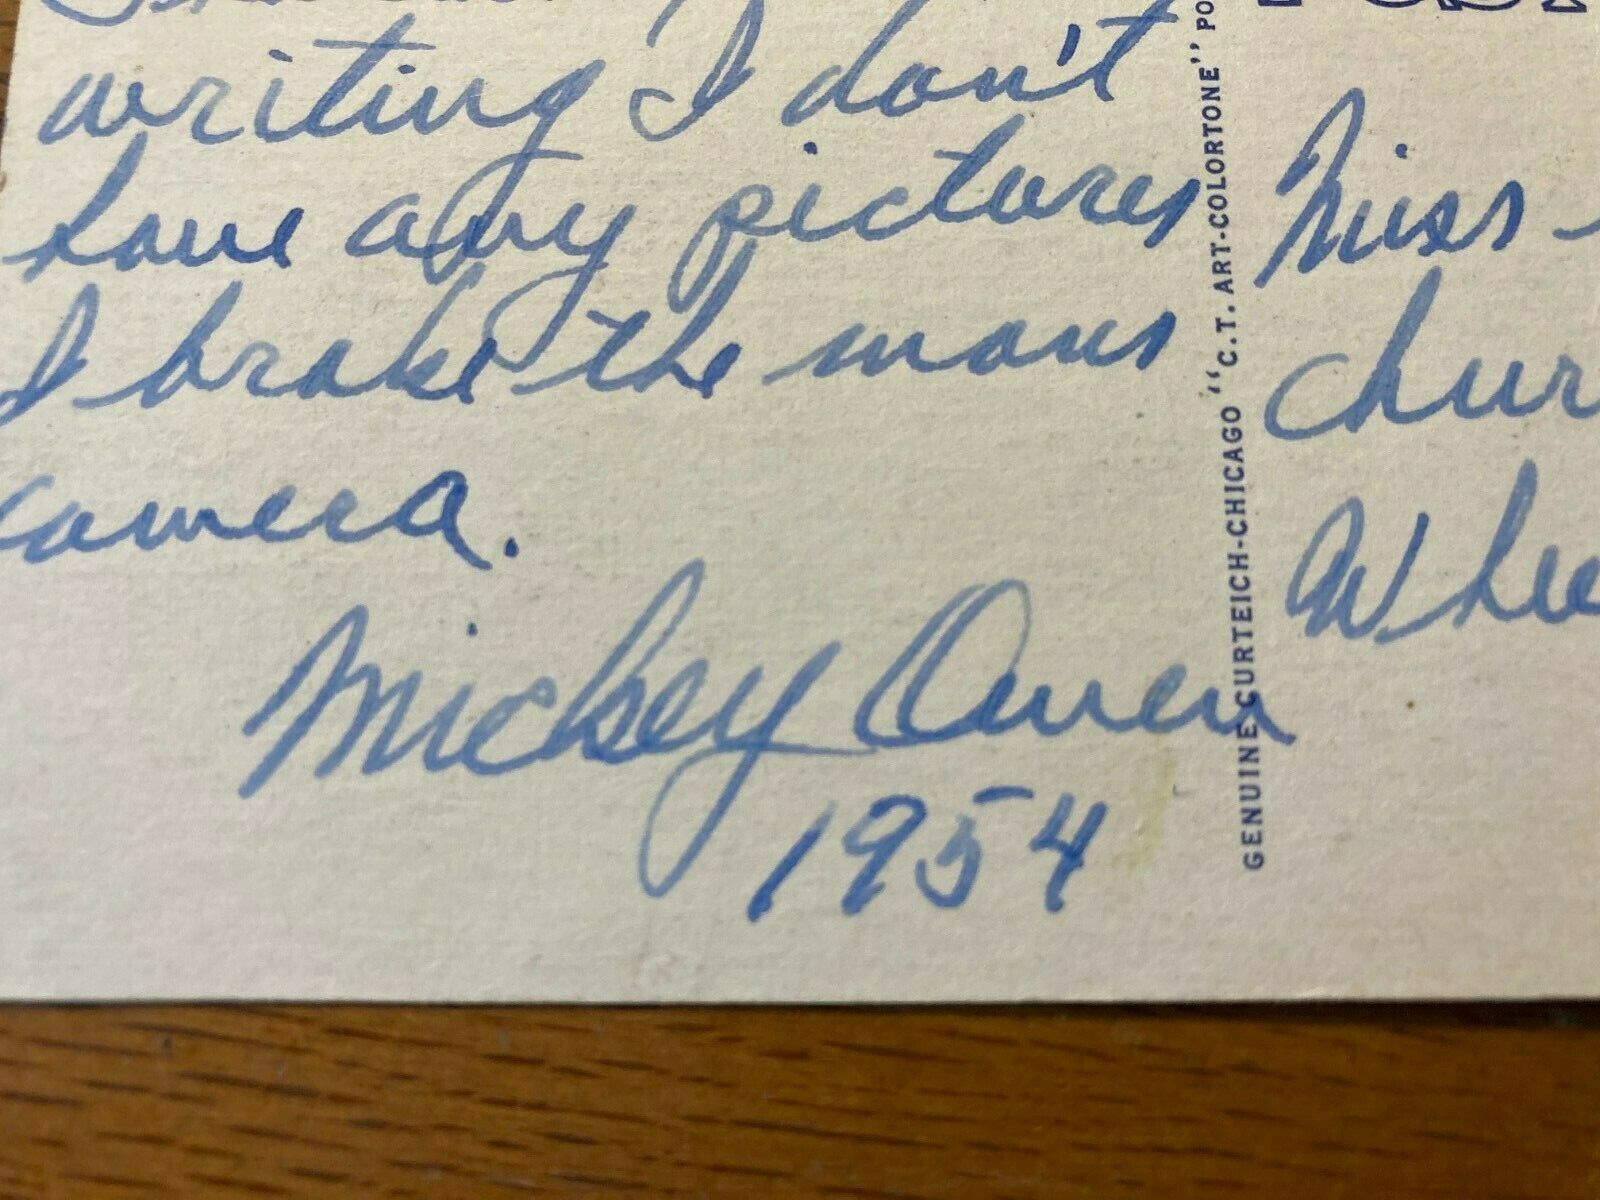 writing I don't
have any pictures
I brake the mans
camera.
Mickey Owen
1954
GENUINE CURTEICH-CHICAGO "C.T. ART-COLORTONE" PO
Miss
Chur
Whee